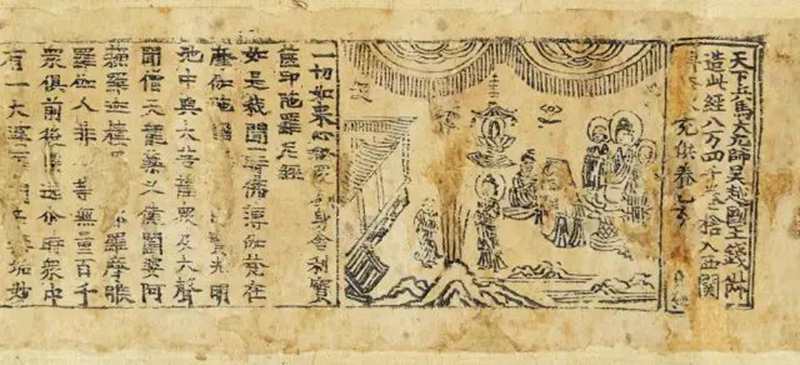 天下兵馬大元帥吳越國王錢俶
造此經八万四千卷捨入西關
永充供養乙亥
一切如来心全身舍利寶
篋印陀羅尼經
如是我聞一時佛薄伽梵在
摩伽陀光明
池中與大菩薩衆及大聲
聞僧天龍藥叉健闥婆阿
蘇羅迦樓羅摩睺
羅伽人非人等無量百千
衆俱前後遶尒時衆中
有一大婆門名無垢妙